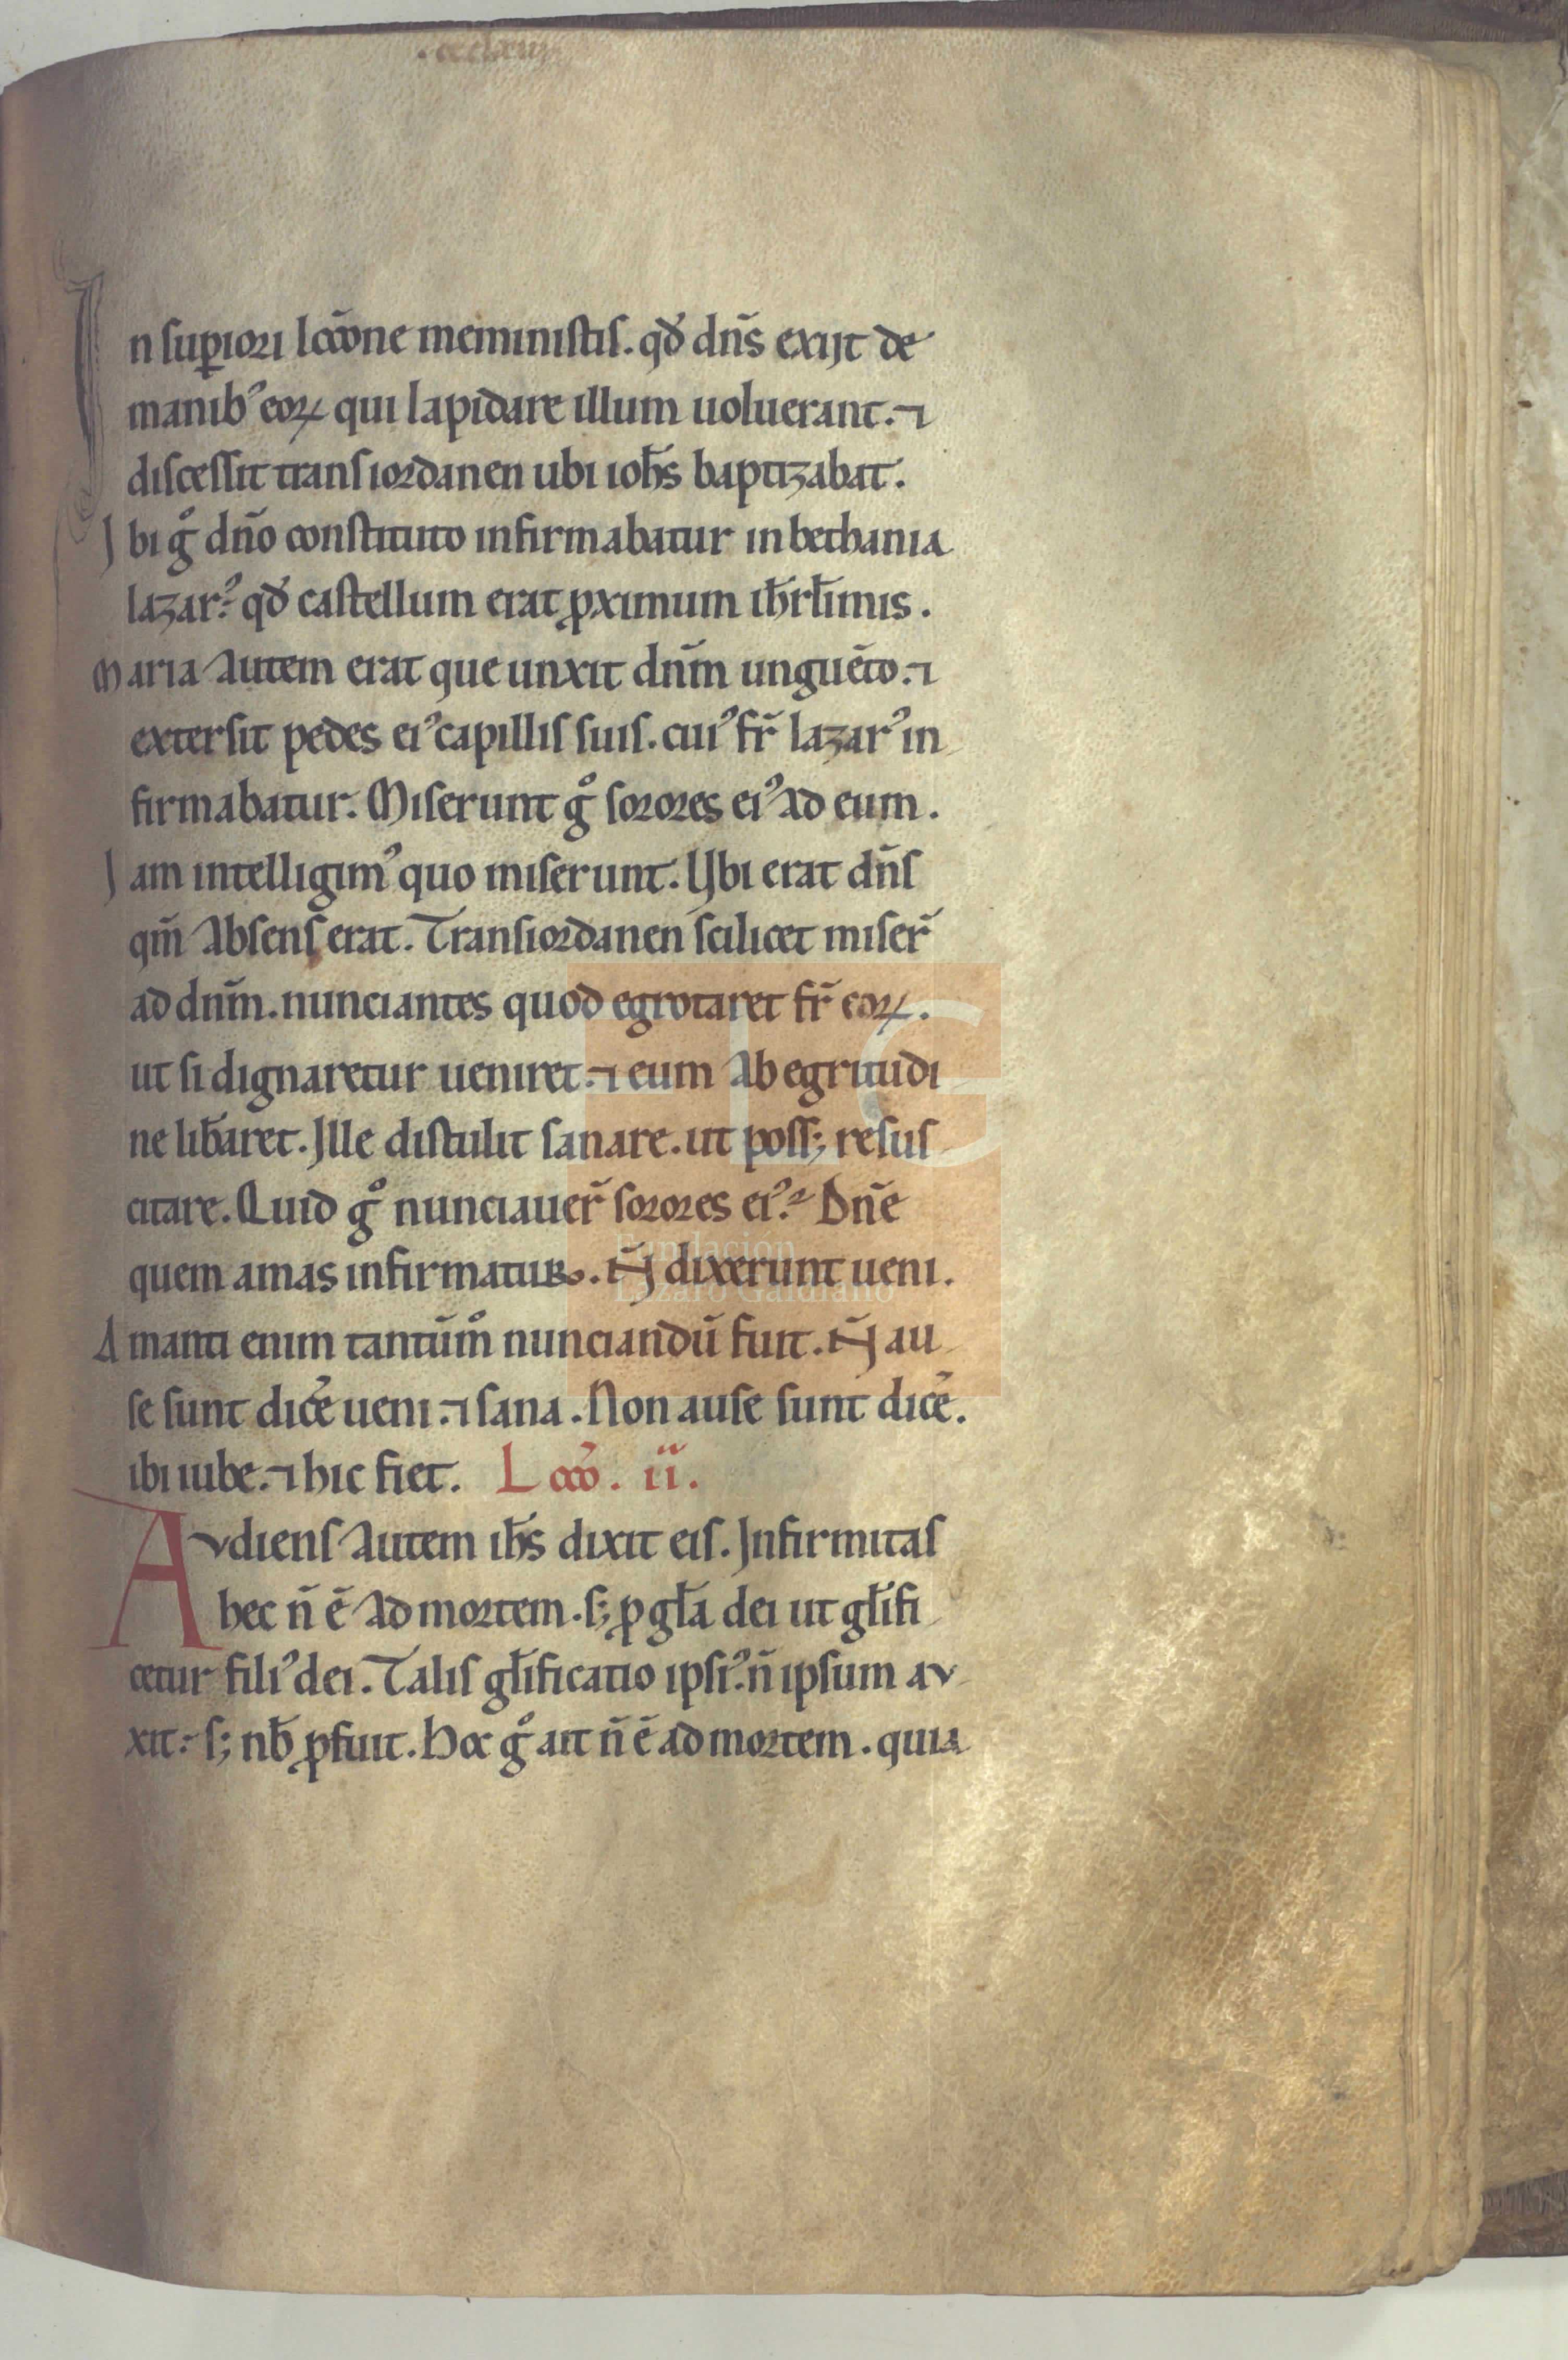 In suꝑiori lcc̄one meministis. qd̛ dn̄s exijt de
manibꝰ eoꝝ qui lapidare illum uoluerant. ⁊
discessit trans iordanen ubi ioh̄s baptizabat.
Ibi gͦ dn̄o constituto infirmabatur in bethania
lazarꝰ: qd̛ castellum erat ꝓximum ih̄rl̄imis.
Maria autem erat que unxit dn̄m unguēto. ⁊
extersit pedes eiꝰ capillis suis. cuiꝰ fr̄ lazarꝰ in
firmabatur. Miserunt gͦ sorores eiꝰ ad eum.
Iam intelligimꝰ quo miserunt. Ubi erat dn̄s
qm̄ absens erat. Transiordanen scilicet miser̄
ad dn̄m. nunciantes quod egrotaret fr̄ eoꝝ.
ut si dignaretur ueniret. ⁊ eum ab egritudi
ne lib̄aret. Ille distulit sanare. ut poss; resus
citare. Quid gͦ nunciauer̄ sorores eiꝰ? Dn̄e
quem amas infirmatur. N̄ dixerunt ueni.
Amanti enim tantūmͦ nunciandū fuit. N̄ au
se sunt dic̄e ueni. ⁊ sana. Non ause sunt dic̄e.
ibi iube. ⁊ hic fiet. Lcc̄o. ii.
Audiens autem ih̄s dixit eis. Infirmitas
hec n̄ ē ad mortem. s; ꝓ gl̄a dei ut gl̄ifi
cetur filiꝰ dei. Talis gl̄ificatio ipsiꝰ. n̄ ipsum au
xit: s; nb̄ ꝓfuit. Hoc gͦ ait n̄ ē ad mortem. quia
Fundación
Lázaro Galdiano